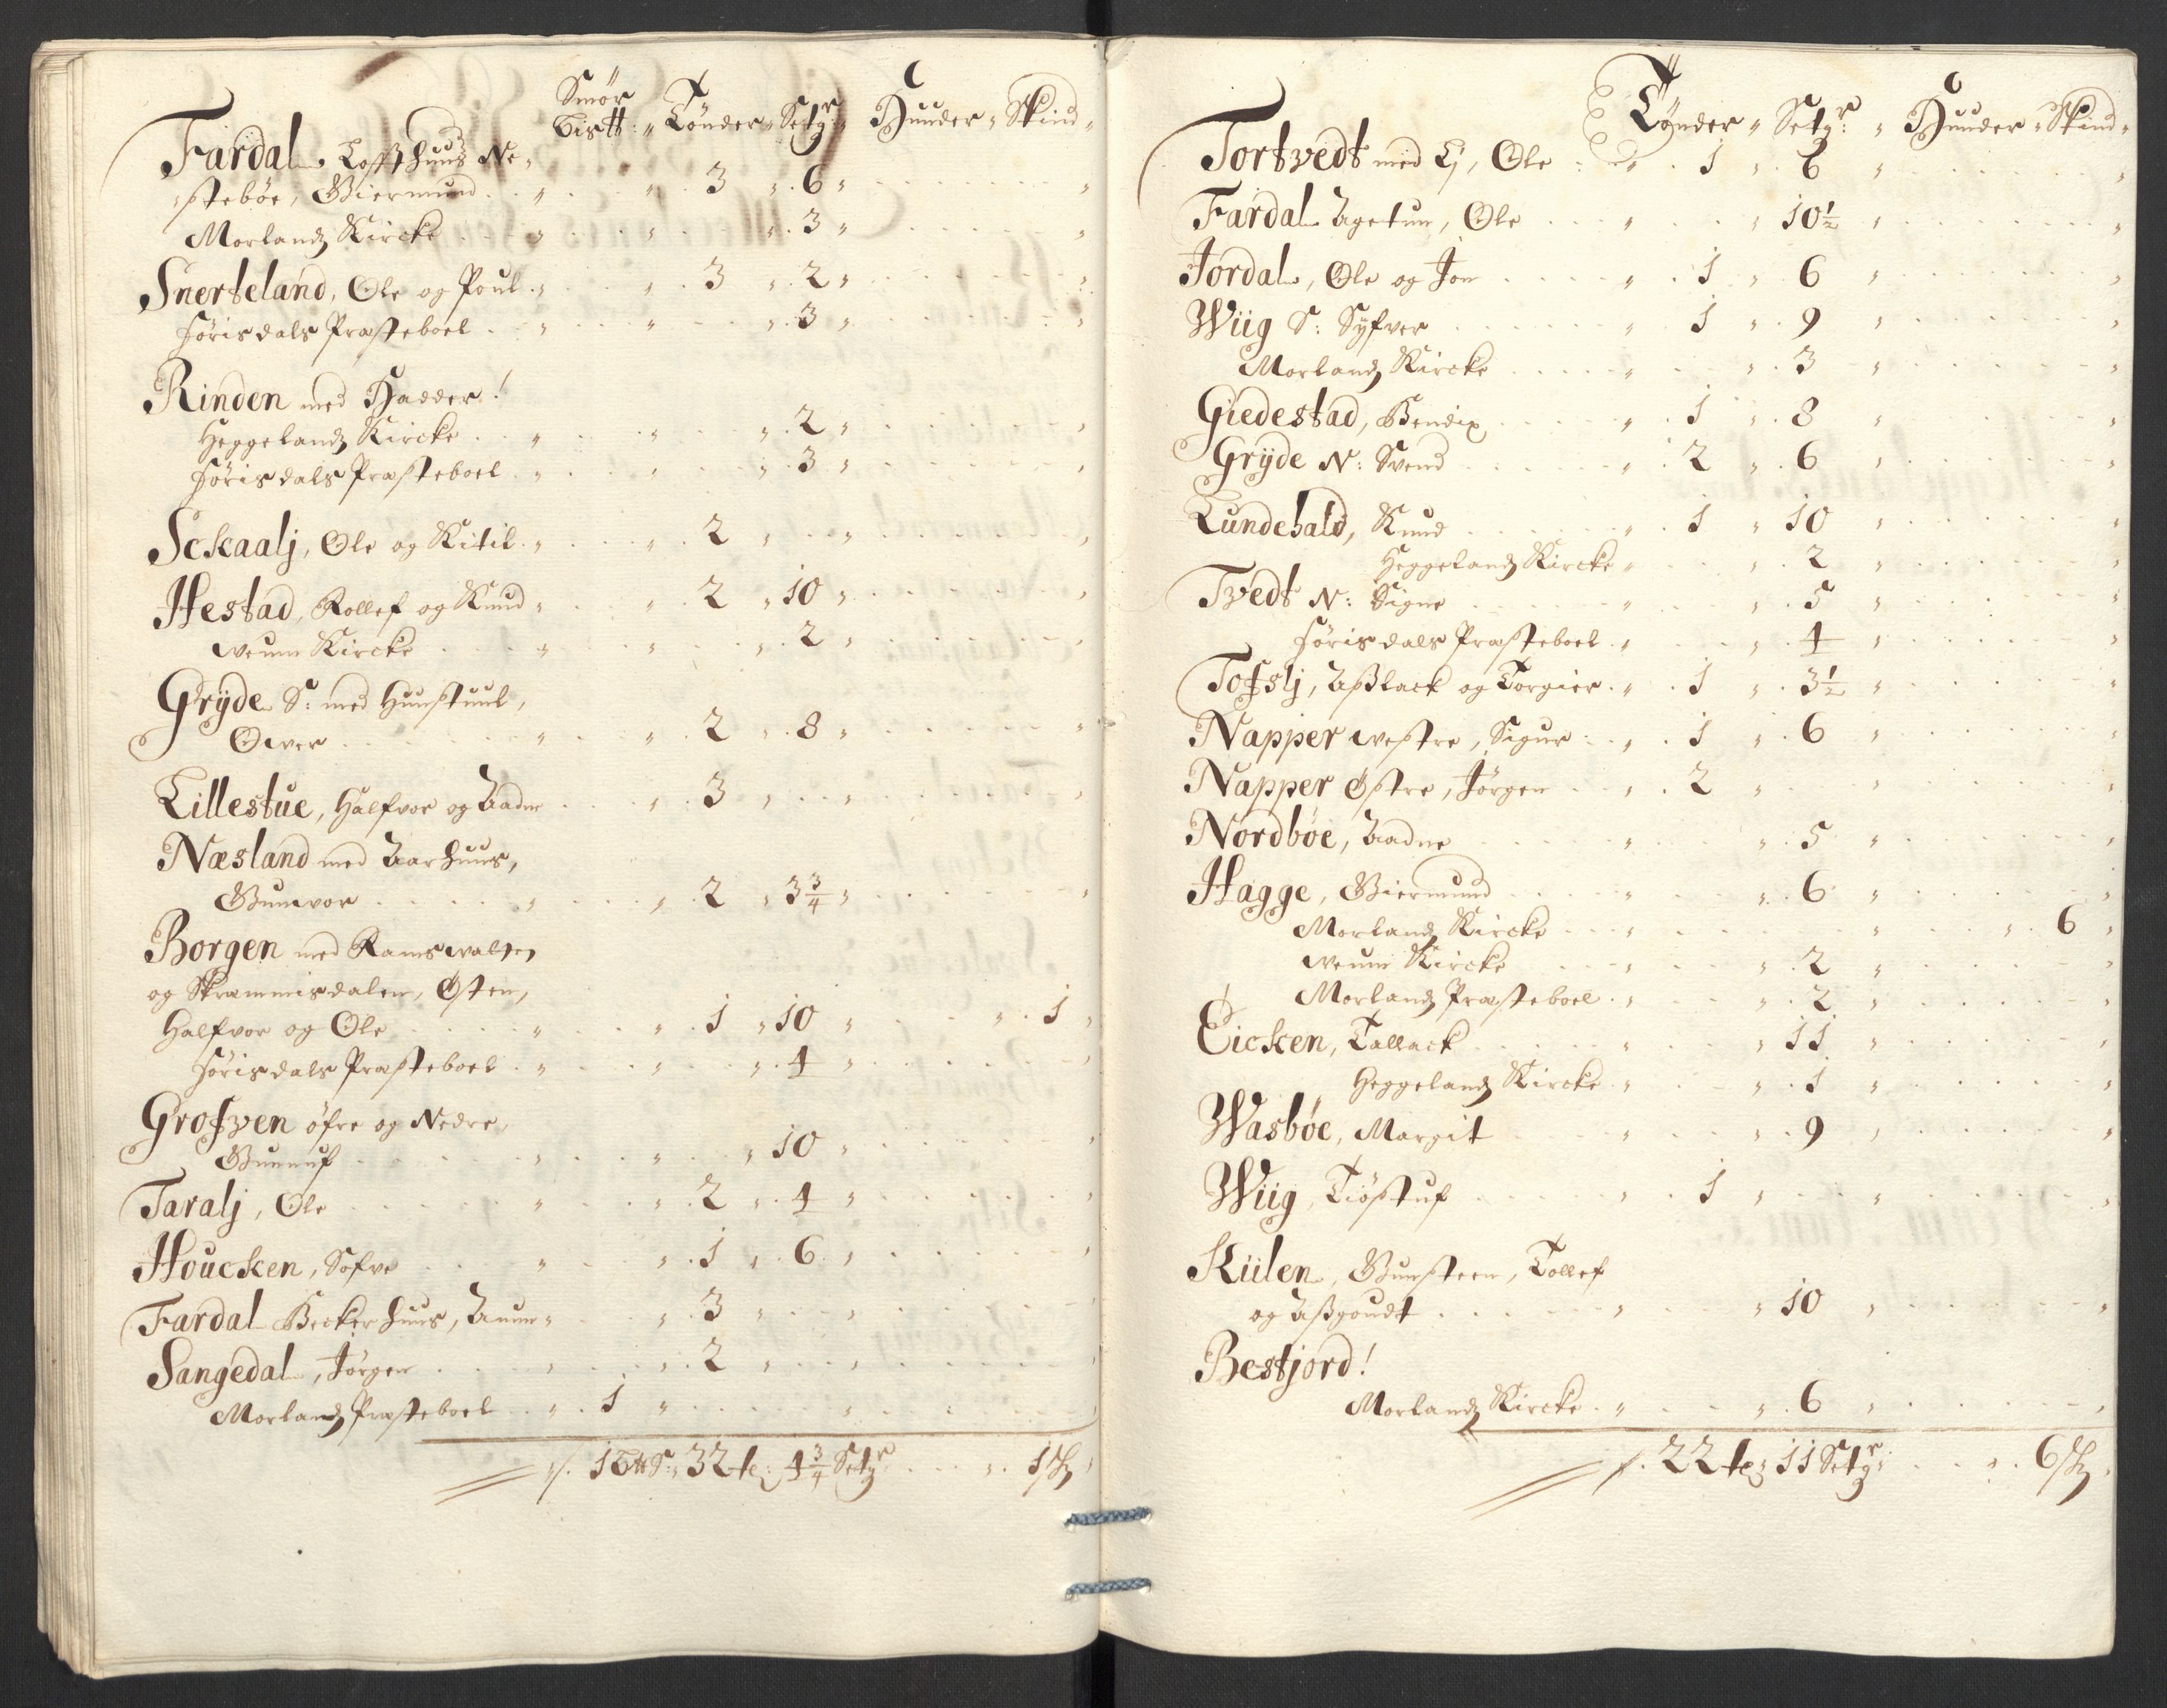 Smör
Bist℔ " Tönder " Setgr: " Huuder " Skind "
Fardal Loffthuus Ne-
stebøe, Giermund " " 3 " 6 " "
Morlandz Kircke " " " 3 " "
Snerteland, Ole og Poul " " 3 " 2 " "
Hörisdals Præsteboel " " " 3 " "
Rinden med Hadder!
Heggelandz Kircke " " " 2 " "
Hörisdals Præsteboel " " " 3 " "
Sckaalj, Ole og Kitil " " 2 " " "
Hestad, Rollef og Knud " " 2 " 10 " "
Weum Kircke " " " 2 " "
Gryde S: med Huustuul,
Oever " " 2 " 8 " "
Lillestue, Halfvor og Aadne " 3 " " "
Næsland med Aarhuus,
Gunwor " " 2 " 3¾ " "
Borgen med Ramswalten
og Skrammisdalen, Østen,
Halfvor og Ole " " 1 " 10 " " 1 "
Hörisdals Præsteboel " " " 4 " "
Grofven öfre og Nedre,
Gunnuf " " " 10 " "
Taralj, Ole " " 2 " 4 " "
Houcken, Sofve " " 1 " 6 " "
Fardal Beckerhuus, Aum " " 3 " " "
Sangedal, Jörgen " " 2 " " "
Morlandz Præsteboel " 1 " " "
/. 1B℔S: 32 te: 4¾ Setgr " 1 sk
Tönder " Setgr: " Huuder " Skind "
Tortvedt med Ej, Ole " 1 " 6 " "
Fardal Agetun, Ole " " 10½ " "
Jordal, Ole og Jon " 1 " 6 " "
Wiig S: Syfver " 1 " 9 " "
Morlandz Kircke " " 3 " "
Giedestad, Bendix " 1 " 8 " "
Gryde N: Svend " 2 " 6 " "
Lundehald, Knud " 1 " 10 " "
Heggelandz Kircke " " 2 " "
Tvedt N: Signe " " 5 " "
Hörisdals Præsteboel " " 4 " "
Tofslj, Aßlack og Torgier " 1 " 3½ " "
Napper westre, Sigur " 1 " 6 " "
Napper Østre, Jörgen " 2 " " "
Nordbøe, Aadne " " 5 " "
Hagge, Giermund " " 6 " "
Morlandz Kircke " " " 6 "
Weum Kircke " " 2 " "
Morlandz Præsteboel " " 2 " "
Eicken, Tallack " " 11 " "
Heggelandz Kircke " " 1 " "
Wasbøe, Margit " " 9 " "
Wiig, Tiöstuf " 1 " " "
Kiilen, Gunsteen, Tollef
og Aßgoudt " " 10 " "
Bestjord!
Morlandz Kircke " " 6 " "
/. 22 te: 11 Setgr: " 6 sk